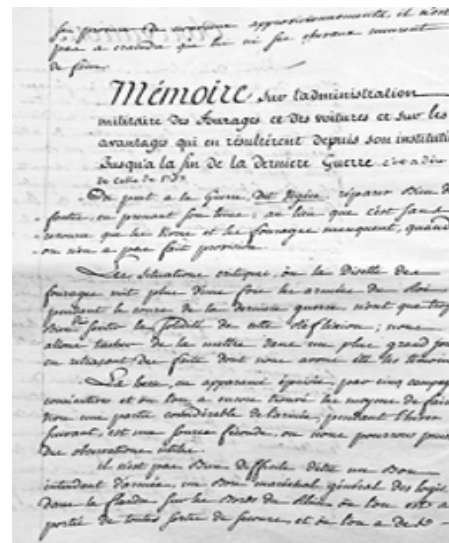 il n'est
pas a craindre que lui ni ses chevaux meurent
de faim.
Mémoire sur l'administration
militaire des fourages et des voitures et sur les
avantages qui en résultèrent depuis son institution
Jusqu'a la fin de la derniere Guerre c'est a dire
de celle de
On peut a la Guerre, dit Vegèce, réparer bien des
fautes, en prenant son tems, au lieu que c'est sans
ressource que les vivres et le fourage manquent, quand
on n'en a pas fait provision.
Les situations critiques, ou la Disette des
fourages mit plus d'une fois les armées du Roi
pendant le cours de la derniere guerre n'ont que trop
sentir la solidité de cette réflexion ; nous
allons tacher de la mettre dans un plus grand jour
en retraçant des faits dont nous avons été les témoins
La hesse, en apparence épuisée, par cinq campagnes
consécutives et ou l'on a encore trouvé les moyens de faire
une partie considérable de l'armée, pendant l'hiver
suivant, est une source féconde, ou nous pourrons puiser
des observations utiles.
il n'est pas bien difficile d'etre un Bon
intendant d'armée, un Bon maréchal général des logis,
dans la flandre sur les Bords du Rhin ou l'on est a
portée de toutes sortes de secours, et ou l'on a de